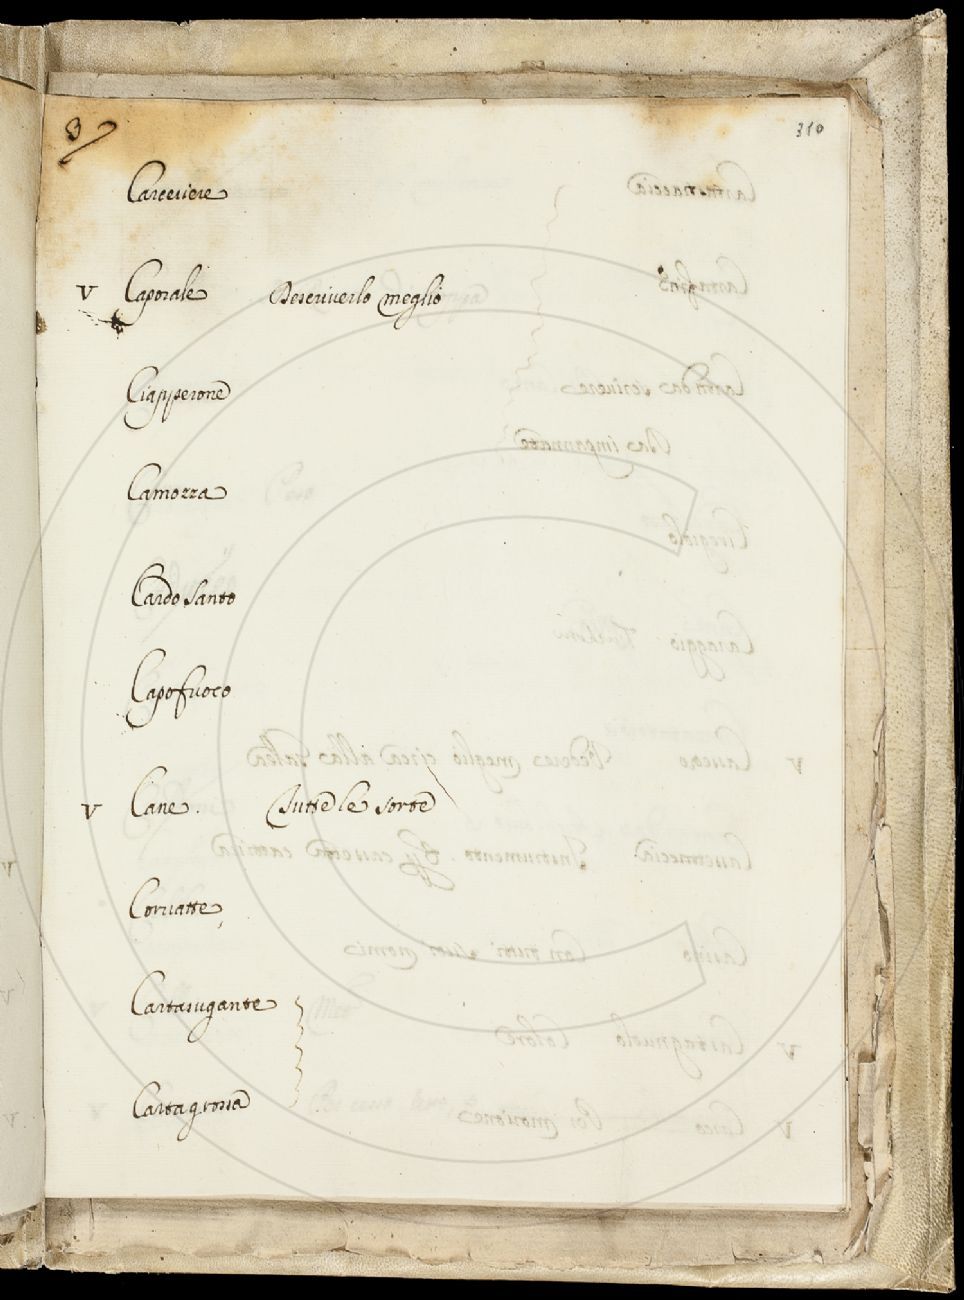 3
310
Carceriere
V Caporale Descriverlo meglio
Ciapperone
Camozza
Cardo Santo
Capofuoco
V Cane. Tutte le sorte
Coruatte
Cartasugante
Cartagrossa